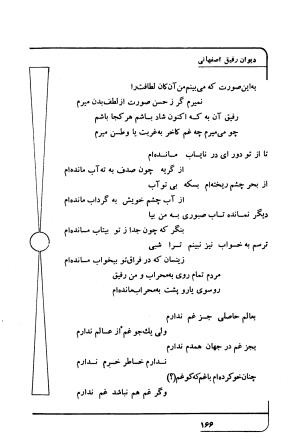 دیوان رفیق اصفهانی
به‌این‌صورت که می‌بینم‌من‌آن‌کان لطافت‌را
نمیرم گر ز حسن صورت از لطف‌بدن میرم
رفیق آن به کـه اکنون شاد باشم هر کجا باشم
چو می‌میرم چه غم کاخر به‌غربت یا وطـن میرم
تا از تو دور ای در نایـاب مـانده‌ام
از گریه چون صدف به ته‌آب مانده‌ام
از بحر چشم ریخته‌ام بسکه بی تو آب
از آب چشم خویش به گرداب مانده‌ام
دیگر نمـانده تـاب صبوری بـه من بیا
بنگر که چون جدا ز تو بیتاب مـانده‌ام
ترسم به خـواب نیز نبینم تـرا شبی
زینسان که در فراق‌تو بیخواب مـانده‌ام
مردم تمام روی به‌محراب و من رفیق
رو سوی یار و پشت به‌محراب‌مانده‌ام
بعالم حاصلی جـز غم ندارم
ولی یك‌جو غم از عـالم ندارم
بجز غم در جهان همدم ندارم
نـدارم خـاطر خـرم نـدارم
چنان‌خو کرده‌ام باغم‌که‌گو غم(؟)
وگر غم هم نباشد غم ندارم
۱۶۶